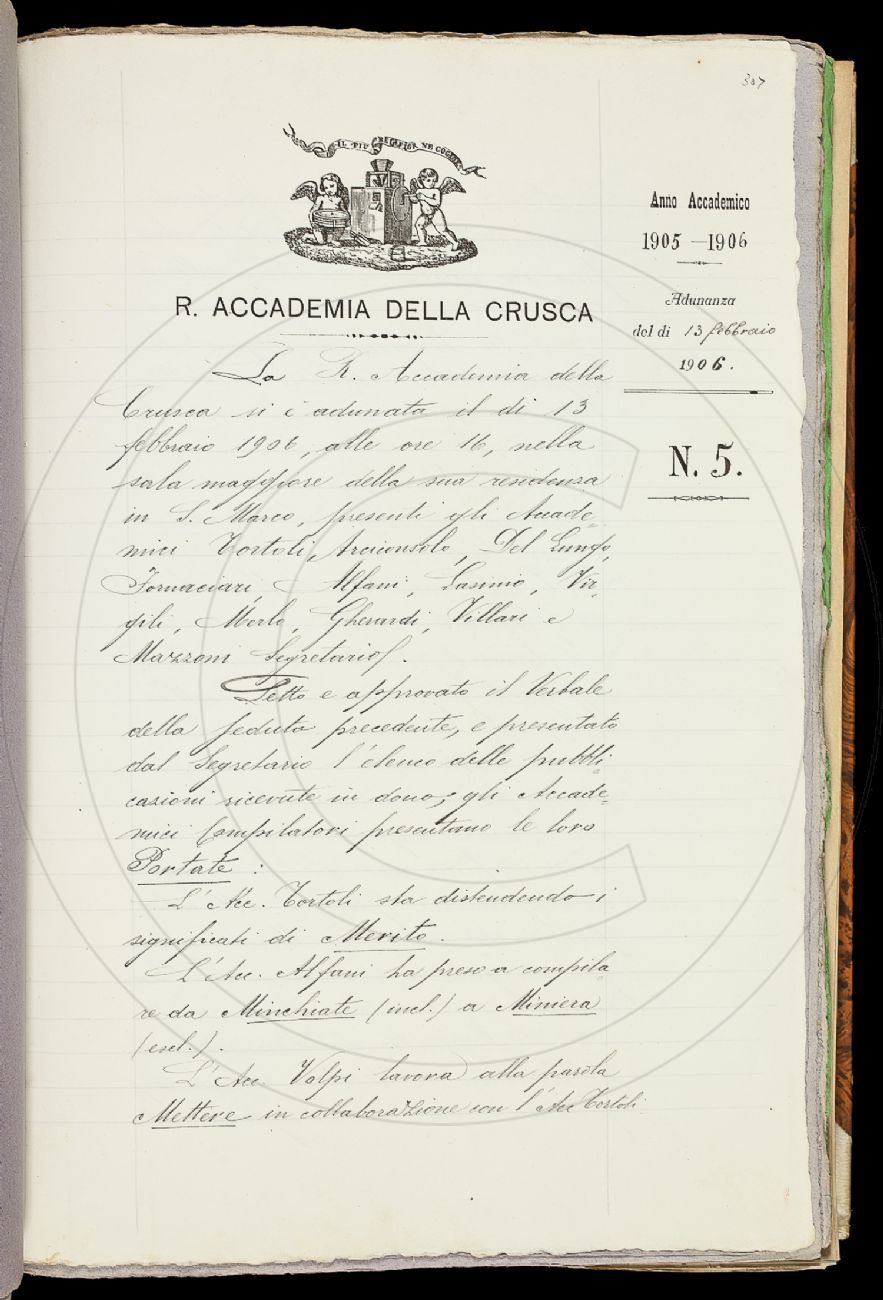 307
IL PIÙ BEL FIOR NE COGLIE
Anno Accademico
1905 — 1906
Adunanza
del dì 13 febbraio
1906.
N. 5.
R. ACCADEMIA DELLA CRUSCA
La R. Accademia della
Crusca si è adunata il dì 13
febbraio 1906, alle ore 16, nella
sala maggiore della sua residenza
in S. Marco, presenti gli Accade-
mici Tortoli, Arciconsolo, Del Lungo,
Fornaciari, Alfani, Lasinio, Vir-
gili, Merlo, Gherardi, Villari e
Mazzoni Segretario.
Letto e approvato il Verbale
della seduta precedente, e presentato
dal Segretario l'elenco delle pubbli-
cazioni ricevute in dono, gli Accade-
mici Compilatori presentano le loro
Portate:
L'Acc. Tortoli sta distendendo i
significati di Merito.
L'Acc. Alfani ha preso a compila-
re da Minchiate (incl.) a Miniera
(escl.).
L'Acc. Volpi lavora alla parola
Mettere in collaborazione con l'Acc Tortoli